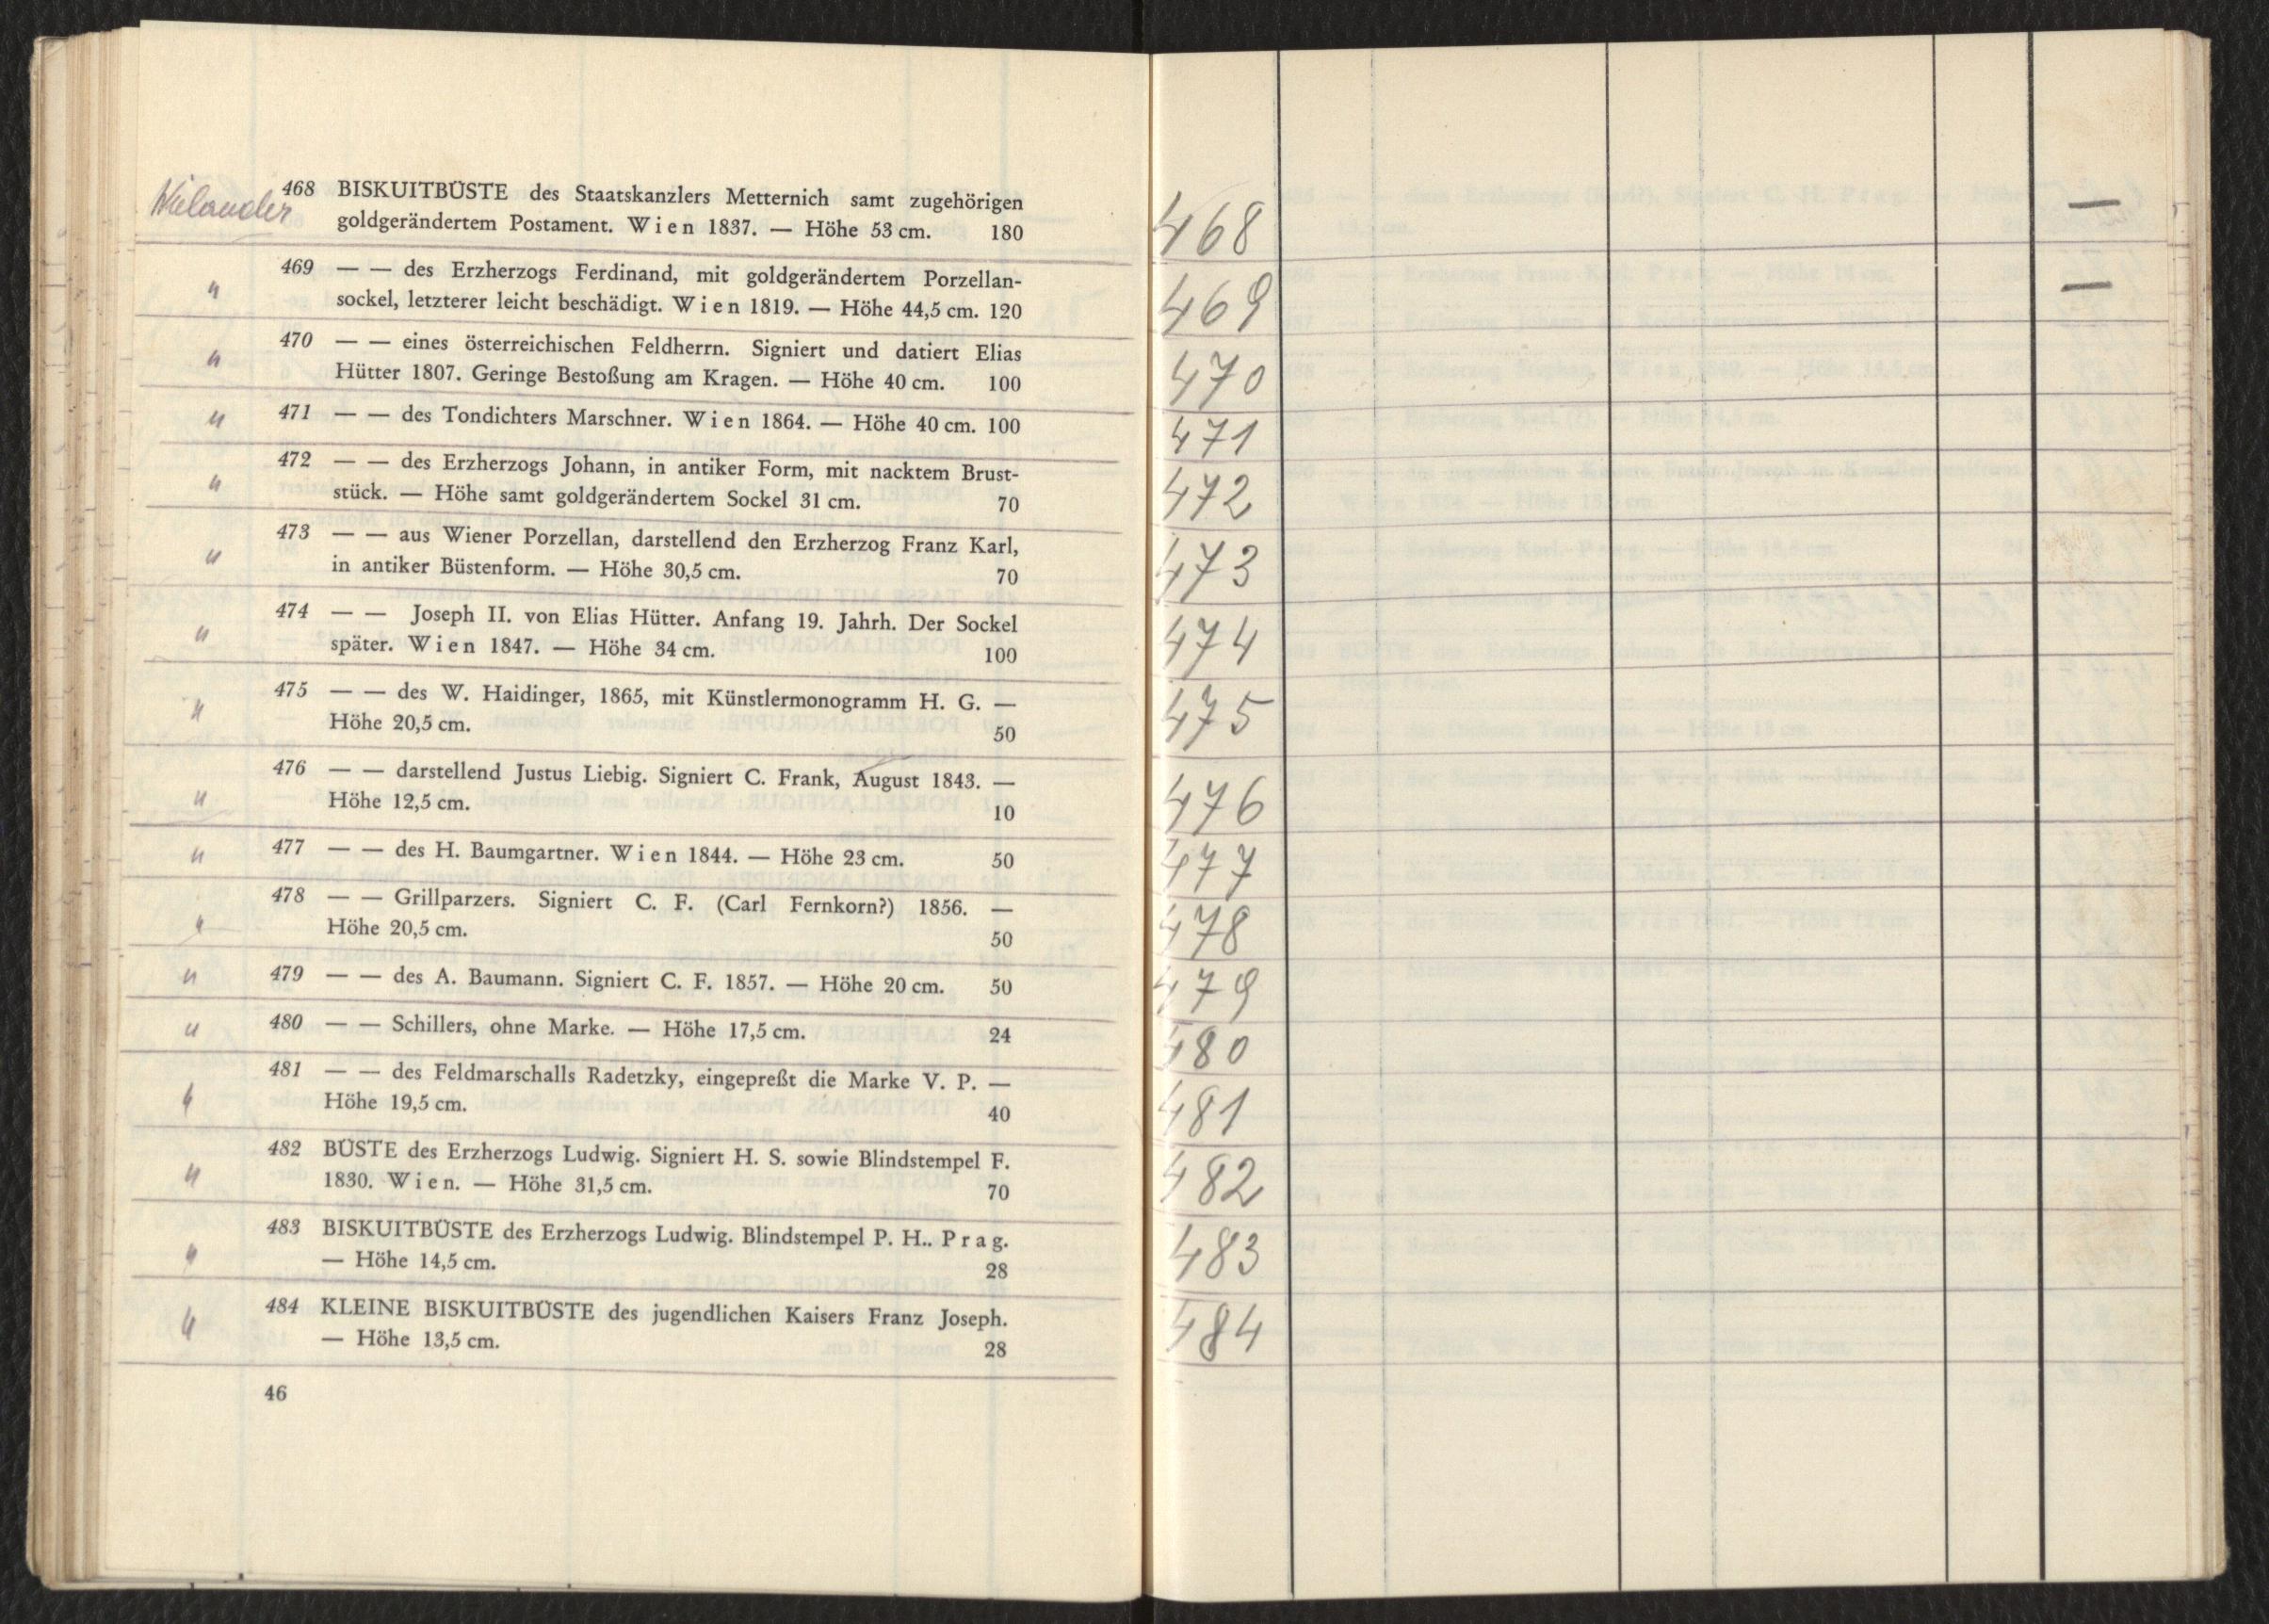 Wielander
468 BISKUITBÜSTE des Staatskanzlers Metternich samt zugehörigen
goldgerändertem Postament. Wien 1837. — Höhe 53 cm. 180
" 469 — — des Erzherzogs Ferdinand, mit goldgerändertem Porzellan-
sockel, letzterer leicht beschädigt. Wien 1819. — Höhe 44,5 cm. 120
" 470 — — eines österreichischen Feldherrn. Signiert und datiert Elias
Hütter 1807. Geringe Bestoßung am Kragen. — Höhe 40 cm. 100
" 471 — — des Tondichters Marschner. Wien 1864. — Höhe 40 cm. 100
" 472 — — des Erzherzogs Johann, in antiker Form, mit nacktem Brust-
stück. — Höhe samt goldgerändertem Sockel 31 cm. 70
" 473 — — aus Wiener Porzellan, darstellend den Erzherzog Franz Karl,
in antiker Büstenform. — Höhe 30,5 cm. 70
" 474 — — Joseph II. von Elias Hütter. Anfang 19. Jahrh. Der Sockel
später. Wien 1847. — Höhe 34 cm. 100
" 475 — — des W. Haidinger, 1865, mit Künstlermonogramm H. G. —
Höhe 20,5 cm. 50
" 476 — — darstellend Justus Liebig. Signiert C. Frank, August 1843. —
Höhe 12,5 cm. 10
" 477 — — des H. Baumgartner. Wien 1844. — Höhe 23 cm. 50
" 478 — — Grillparzers. Signiert C. F. (Carl Fernkorn?) 1856. —
Höhe 20,5 cm. 50
" 479 — — des A. Baumann. Signiert C. F. 1857. — Höhe 20 cm. 50
" 480 — — Schillers, ohne Marke. — Höhe 17,5 cm. 24
" 481 — — des Feldmarschalls Radetzky, eingepreßt die Marke V. P. —
Höhe 19,5 cm. 40
" 482 BÜSTE des Erzherzogs Ludwig. Signiert H. S. sowie Blindstempel F.
1830. Wien. — Höhe 31,5 cm. 70
" 483 BISKUITBÜSTE des Erzherzogs Ludwig. Blindstempel P. H.. Prag.
— Höhe 14,5 cm. 28
" 484 KLEINE BISKUITBÜSTE des jugendlichen Kaisers Franz Joseph.
— Höhe 13,5 cm. 28
46
468 —
469 —
470
471
472
473
474
475
476
477
478
479
480
481
482
483
484